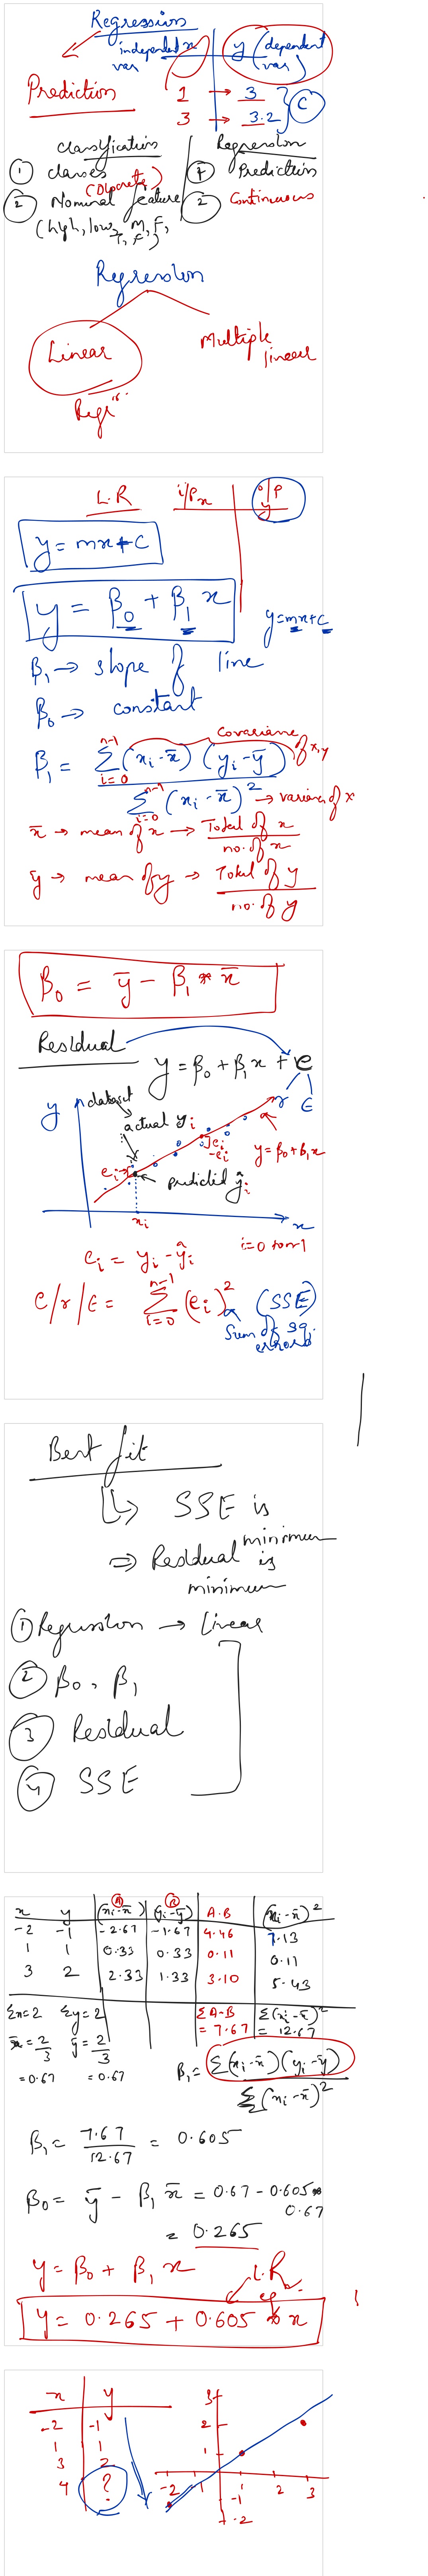 Regression
independent x | y (dependent
var | var)
Prediction
1 → 3
3 → 3.2
C
Classification | Regression
① classes | ① Prediction
(Discrete)
② Nominal feature | ② Continuous
(high, low, M, F,
T, F)
Regression
Linear
Multiple
linear
L.R
i/P x | o/p y
y = mx + c
y = β0 + β1 x
y = mx + c
β1 → slope of line
β0 → constant
Covariance of x,y
β1 = Σ (i=0 to n-1) (xi - x̄) (yi - ȳ)
Σ (i=0 to n-1) (xi - x̄)² → variance of x
x̄ → mean of x → Total of x
no. of x
ȳ → mean of y → Total of y
no. of y
β0 = ȳ - β1 * x̄
Residual
y = β0 + β1 x + e
r ε
y
dataset
actual yi
ei
ei
-ei
y = β0 + β1 x
predicted ŷi
xi
x
ei = yi - ŷi
i=0 to n-1
e/r/ε = Σ (i=0 to n-1) (ei)² (SSE)
Sum of sq.
errors
Best fit
↳ SSE is
minimum
⇒ Residual is
minimum
① Regression → Linear
② β0, β1
③ Residual
④ SSE
x | y | Ⓐ (xi - x̄) | Ⓑ (yi - ȳ) | A·B | (xi - x̄)²
-2 | -1 | -2.67 | -1.67 | 4.46 | 7.13
1 | 1 | 0.33 | 0.33 | 0.11 | 0.11
3 | 2 | 2.33 | 1.33 | 3.10 | 5.43
Σx=2 | Σy=2 | ΣA·B = 7.67 | Σ(xi - x̄)² = 12.67
x̄ = 2/3 ȳ = 2/3
=0.67 =0.67
β1 = Σ(xi - x̄)(yi - ȳ)
Σ(xi - x̄)²
β1 = 7.67 / 12.67 = 0.605
β0 = ȳ - β1 x̄ = 0.67 - 0.605 *
0.67
= 0.265
y = β0 + β1 x
L.R
eq
y = 0.265 + 0.605 * x
x | y
-2 | -1
1 | 1
3 | 2
4 | ?
3
2
1
-2 1 2 3
-1
-2